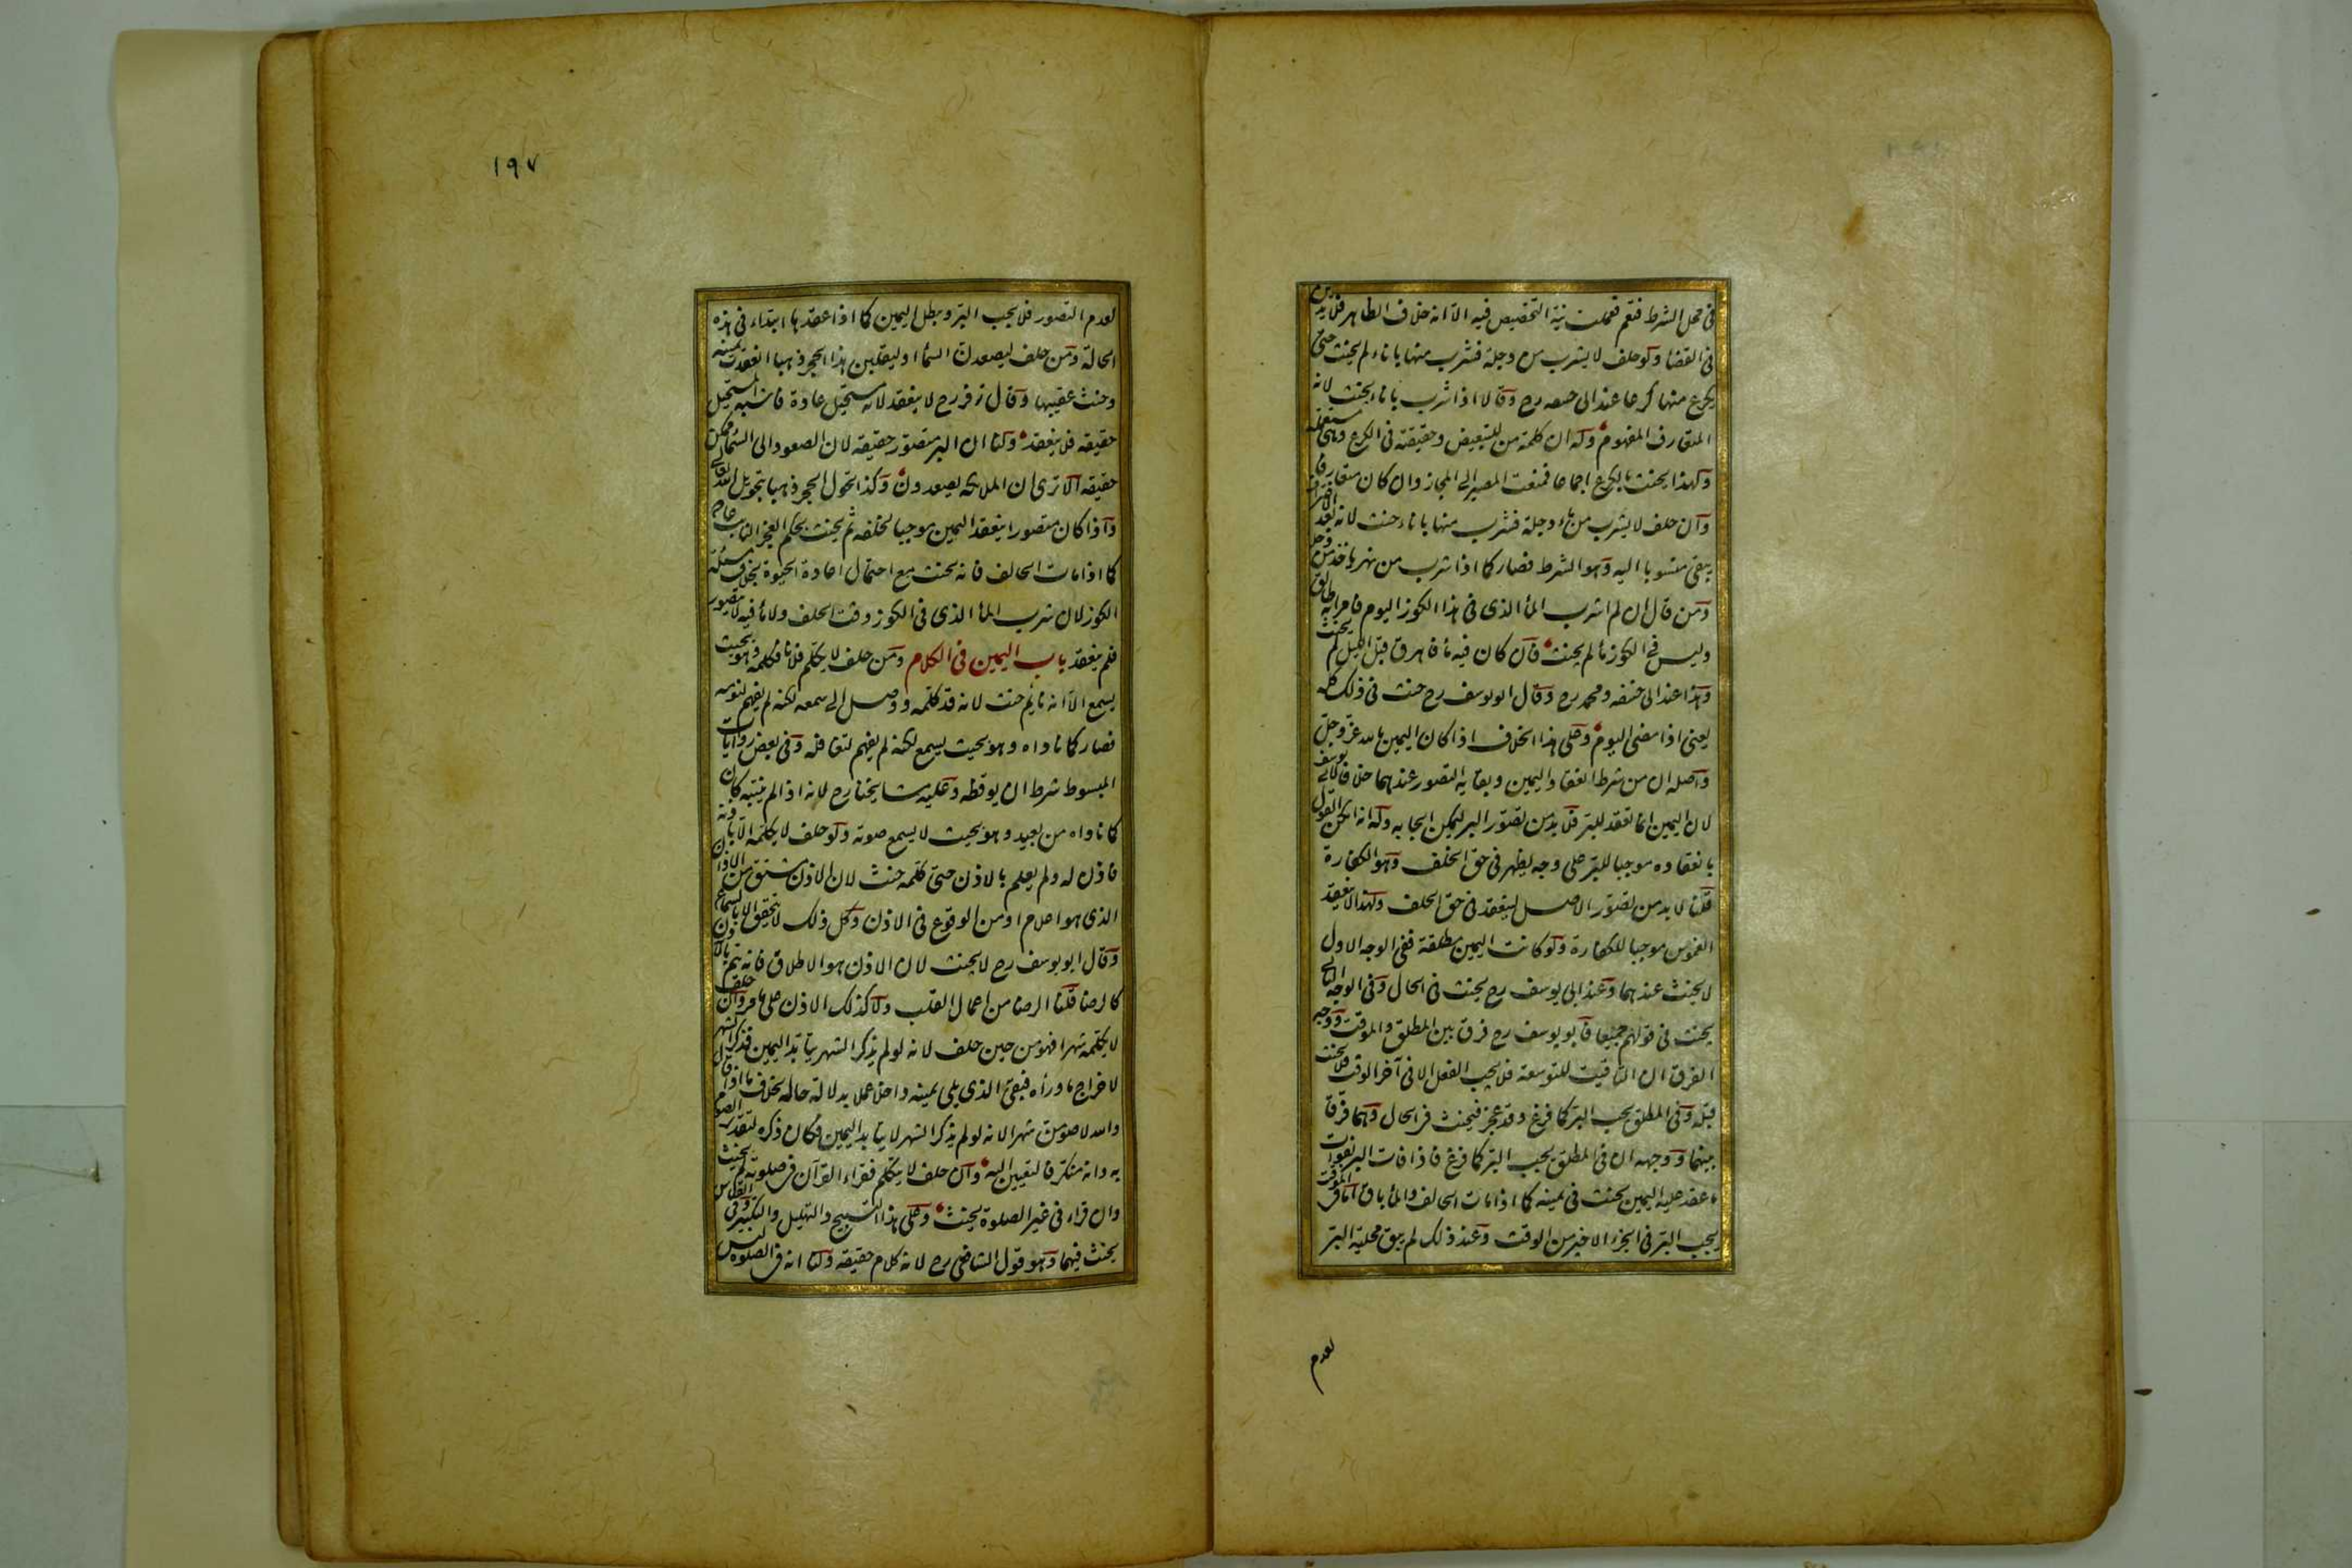 فى محل الشرط فتعم فعملت نية التخصيص فيه الا انه خلاف الظاهر فلا يدين
فى القضا ولو حلف لا يشرب من دجلة فشرب منها باناء لم يحنث حتى
يكرع منها كرعا عند ابى حنيفه رح وقالا اذا شرب باناء يحنث لانه
المتعارف المفهوم وله ان كلمة من للتبعيض وحقيقته فى الكرع وهى مستعملة
ولهذا يحنث بالكرع اجماعا فمنعت المصير الى المجاز وان كان متعارفا
وان حلف لا يشرب من ماء دجلة فشرب منها باناء حنث لانه بعد الاغتراف
يبقى منسوبا اليه وهو الشرط فصار كما اذا شرب من نهر ياخذ من دجلة
ومن قال ان لم اشرب الماٴ الذى فى هذا الكوز اليوم فامراته طالق
وليس فى الكوز ماٴ لم يحنث فان كان فيه ماٴ فاهرق قبل الليل لم يحنث
وهذا عند ابى حنيفه ومحمد رح وقال ابو يوسف رح حنث فى ذلك كله
يعنى اذا مضى اليوم وعلى هذا الخلاف اذا كان اليمين بالله عز وجل
واصله ان من شرط انعقاد اليمين وبقايه التصور عندهما خلافا لابى يوسف
لان اليمين انما تعقد للبر فلا بد من تصور البر ليمكن ايجابه وله انه امكن القول
بانعقاده موجبا للبر على وجه يظهر فى حق الخلف وهو الكفارة
قلنا لا بد من تصور الاصل لينعقد فى حق الخلف ولهذا لا ينعقد
الغموس موجبا للكفارة ولو كانت اليمين مطلقة ففى الوجه الاول
لا يحنث عندهما وعند ابى يوسف رح يحنث فى الحال وفى الوجه الثانى
يحنث فى قولهم جميعا فابو يوسف رح فرق بين المطلق والموقت ووجه
الفرق ان التاقيت للتوسعة فلا يجب الفعل الا فى آخر الوقت فلا يحنث
قبله وفى المطلق يجب البر كما فرغ وقد عجز فيحنث فى الحال وهما فرقا
بينهما ووجهه ان فى المطلق يجب البر كما فرغ فاذا فات البر بفوات
ما عقد عليه اليمين يحنث فى يمينه كما اذا مات الحالف والماٴ باق اما فى الموقت
يجب البر فى الجزء الاخير من الوقت وعند ذلك لم يبق محلية البر
لعدم
١٩٧
لعدم التصور فلا يجب البر وبطل اليمين كما اذا عقدها ابتداء فى هذه
الحالة ومن حلف ليصعدن السماٴ او ليقلبن هذا الحجر ذهبا انعقدت يمينه
وحنث عقيبها وقال زفر رح لا ينعقد لانه مستحيل عادة فاشبه المستحيل
حقيقه فلا ينعقد ولنا ان البر متصور حقيقه لان الصعود الى السماٴ ممكن
حقيقه الا ترى ان الملايكه يصعدون وكذا تحول الحجر ذهبا بتحويل الله تعالى
واذا كان متصورا ينعقد اليمين موجبا لخلفه ثم يحنث بحكم العجز الثابت عادة
كما اذا مات الحالف فانه يحنث مع احتمال اعادة الحيوة بخلاف مسئلة
الكوز لان شرب الماٴ الذى فى الكوز وقت الحلف ولا ماٴ فيه لا يتصور
فلم ينعقد باب اليمين فى الكلام ومن حلف لا يكلم فلانا فكلمه وهو بحيث
يسمع الا انه نايم حنث لانه قد كلمه ووصل الى سمعه لكنه لم يفهم لنومه
فصار كما ناداه وهو بحيث يسمع لكنه لم يفهم لتغافله وفى بعض روايات
المبسوط شرط ان يوقظه وعليه مشايخنا رح لانه اذا لم يتنبه كان
كما ناداه من بعيد وهو بحيث لا يسمع صوته ولو حلف لا يكلمه الا باذنه
فاذن له ولم يعلم بالاذن حتى كلمه حنث لان الاذن مشتق من الاذان
الذى هو اعلام او من الوقوع فى الاذن وكل ذلك لا يتحقق الا بالسماع
وقال ابو يوسف رح لا يحنث لان الاذن هو الاطلاق فانه يتم بالاذن
كالرضا قلنا الرضا من اعمال القلب ولا كذلك الاذن على ما مر وان حلف
لا يكلمه شهرا فهو من حين حلف لانه لو لم يذكر الشهر يتابد اليمين فذكر الشهر
لاخراج ما وراٴه فبقى الذى يلى يمينه داخلا عملا بدلالة حاله بخلاف ما اذا قال
والله لاصومن شهرا لانه لو لم يذكر الشهر لا يتابد اليمين فكان ذكره لتقدير الصوم
به وانه منكر فالتعيين اليه وان حلف لا يتكلم فقراء القرآن فى صلوته لا يحنث
وان قراٴ فى غير الصلوة يحنث وعلى هذا التسبيح والتهليل والتكبير وفى القياس
يحنث فيهما وهو قول الشافعى رح لانه كلام حقيقه ولنا انه فى الصلوة ليس